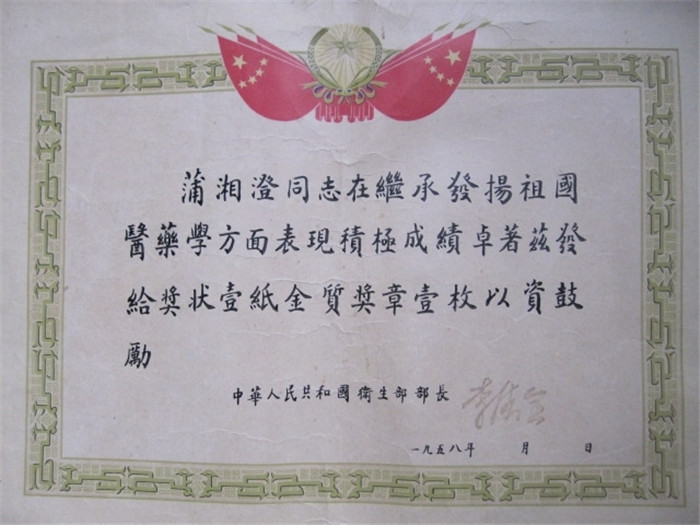 蒲湘澄同志在繼承發揚祖國
醫藥學方面表現積極成績卓著茲發
給奖状壹紙金質奖章壹枚以資鼓
勵
中華人民共和國衛生部部長 李德全
一九五八年 月 日